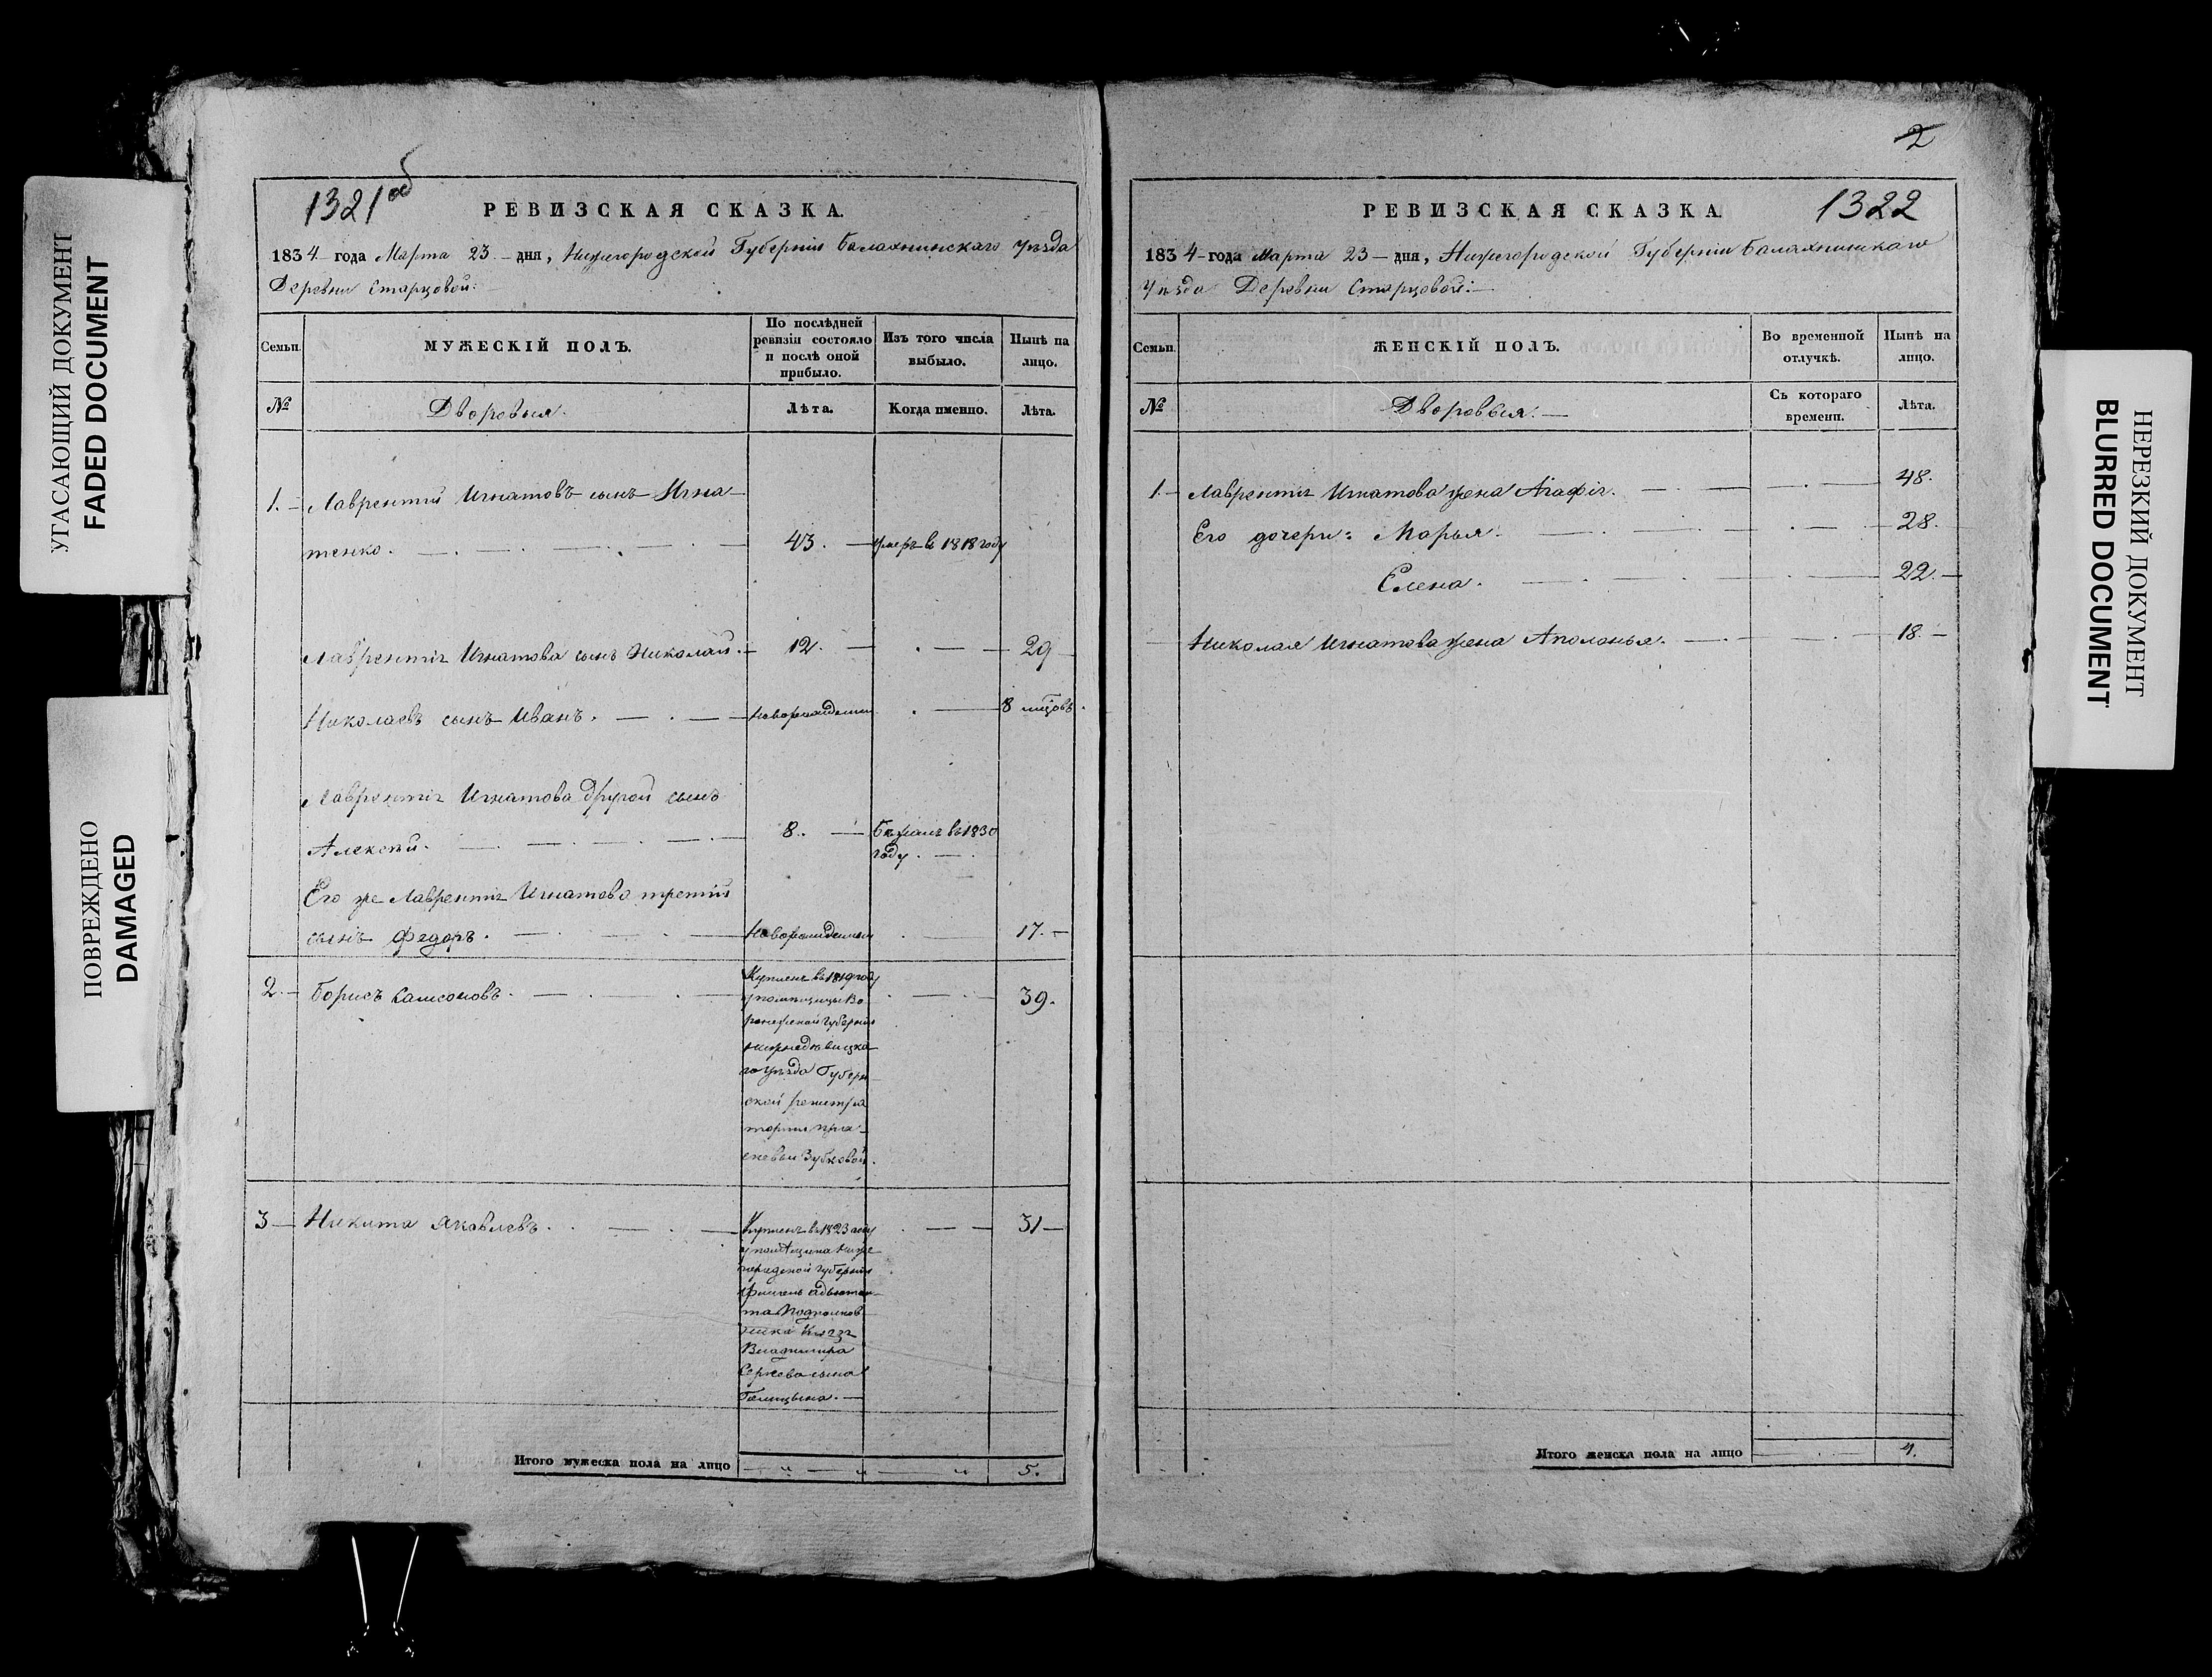 УГАСАЮЩИЙ ДОКУМЕНТ
FADED DOCUMENT
ПОВРЕЖДЕНО
DAMAGED
1321 об
РЕВИЗСКАЯ СКАЗКА.
1834 года Марта 23 дня, Нижегородской Губернии Балахнинскаго Уѣзда
Деревни Старцовой:
Семьи.
МУЖЕСКІЙ ПОЛЪ.
По послѣдней ревизіи состояло и послѣ оной прибыло.
Изъ того числа выбыло.
Нынѣ на лицо.
№
Дворовыя.
Лѣта.
Когда именно.
Лѣта.
1. Лаврентий Игнатовъ сынъ Игна-
тенко. 43. умеръ в 1818 году
Лаврентія Игнатова сынъ Николай. 12. 29
Николаевъ сынъ Иванъ. новорожденный 8 мцовъ.
Лаврентія Игнатова другой сынъ
Алексѣй. 8. Бѣжалъ въ 1830
году.
Его же Лаврентія Игнатова третій
сынъ Федоръ. Новорожденный 17.
2. Борисъ Самсоновъ. 39.
Купленъ въ 1819 году
у помѣщицы Во-
ронежской Губерніи
Нижнедѣвицка-
го Уѣзда Губерн-
ской регистра
торши Пра-
сковьи Зубковой.
3 Никита Яковлевъ. 31
Купленъ въ 1823 году
у помѣщика Ниже-
городской Губерніи
Флигель адъютан-
та Подполков-
ника Князя
Владимира
Сергѣева сына
Голицына.
Итого мужеска пола на лицо 5.
2
РЕВИЗСКАЯ СКАЗКА.
1322
1834 года Марта 23 дня, Нижегородской Губерніи Балахнинскаго
Уѣзда Деревни Старцовой:
Семьи.
ЖЕНСКІЙ ПОЛЪ.
Во временной отлучкѣ.
Нынѣ на лицо.
№
Дворовыя.
Съ котораго времени.
Лѣта.
1. Лаврентія Игнатова жена Агафія. 48.
Его дочери: Марья. 28.
Елена. 22.
Николая Игнатова жена Аполонья. 18.
Итого женска пола на лицо 4.
НЕРЕЗКИЙ ДОКУМЕНТ
BLURRED DOCUMENT